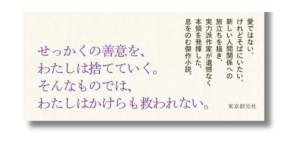 愛ではない。
けれどそばにいたい。
新しい人間関係への
旅立ちを描き、
実力派作家が遺憾なく
本領を発揮した、
息をのむ傑作小説。
せっかくの善意を、
わたしは捨てていく。
そんなものでは、
わたしはかけらも救われない。
東京創元社